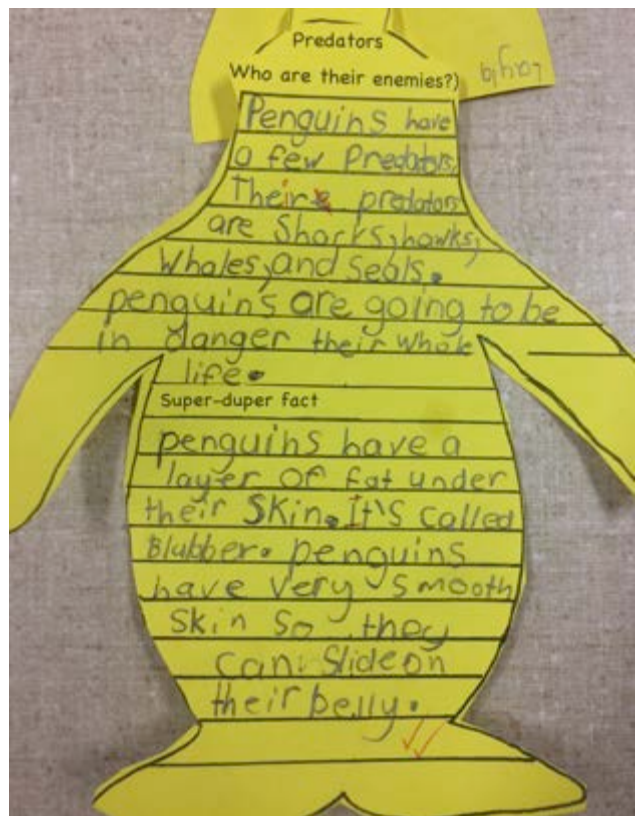 Predators
Who are their enemies?)
Penguins have
a few Predators.
Their predators
are Sharks, hawks,
Whales, and Seals.
penguins are going to be
in danger their whole
life.
Super-duper fact
penguins have a
layer of fat under
their Skin. It's called
Blubber. penguins
have very smooth
Skin so they
can slide on
their belly.